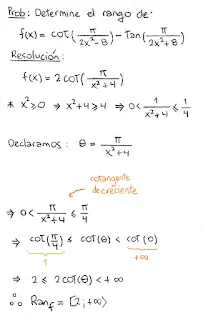 Prob: Determine el rango de:
f(x) = cot(π/(2x²-8)) - Tan(π/(2x²+8))
Resolución:
f(x) = 2cot(π/(x²+4))
* x² ≥ 0 ⇒ x²+4 ≥ 4 ⇒ 0 < 1/(x²+4) ≤ 1/4
Declaramos: θ = π/(x²+4)
cotangente
decreciente
⇒ 0 < π/(x²+4) ≤ π/4
⇒ cot(π/4) ≤ cot(θ) < cot(0)
1 +∞
⇒ 2 ≤ 2cot(θ) < +∞
∴ Ran f = [2; +∞⟩